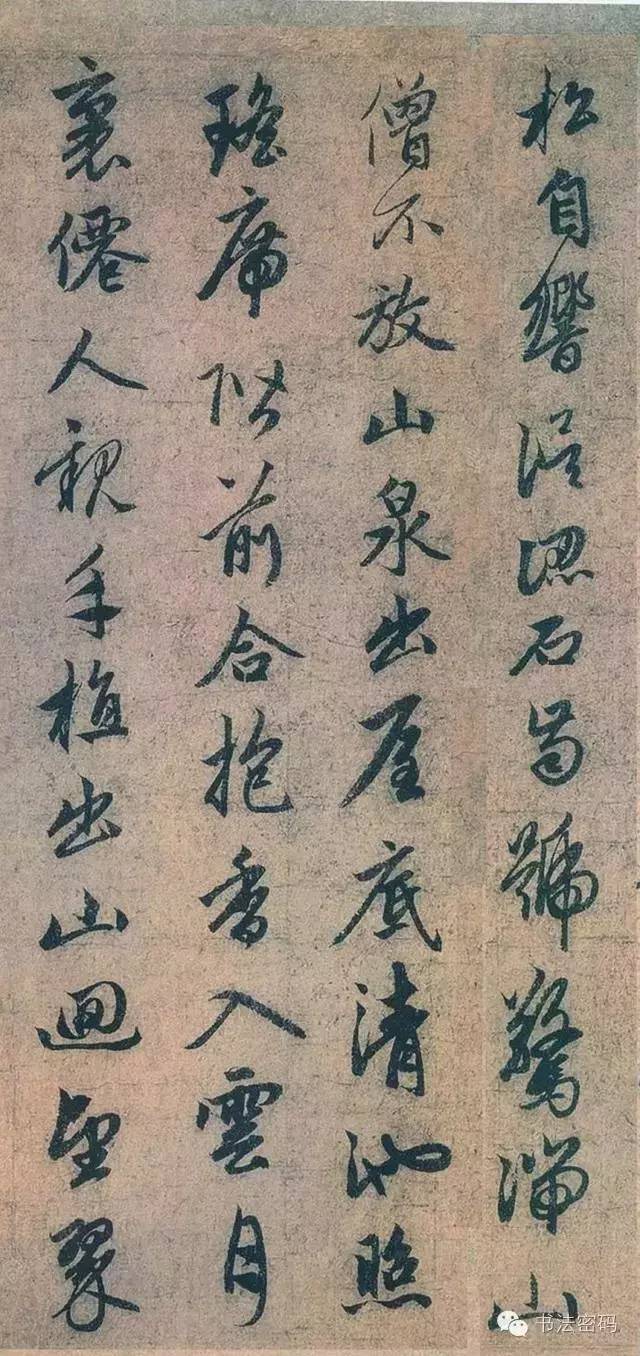 松自響誤認石齒號驚湍山
僧不放山泉出屋底清池照
瑤席階前合抱香入雲月
裏僊人親手植出山迴望翠
书法密码